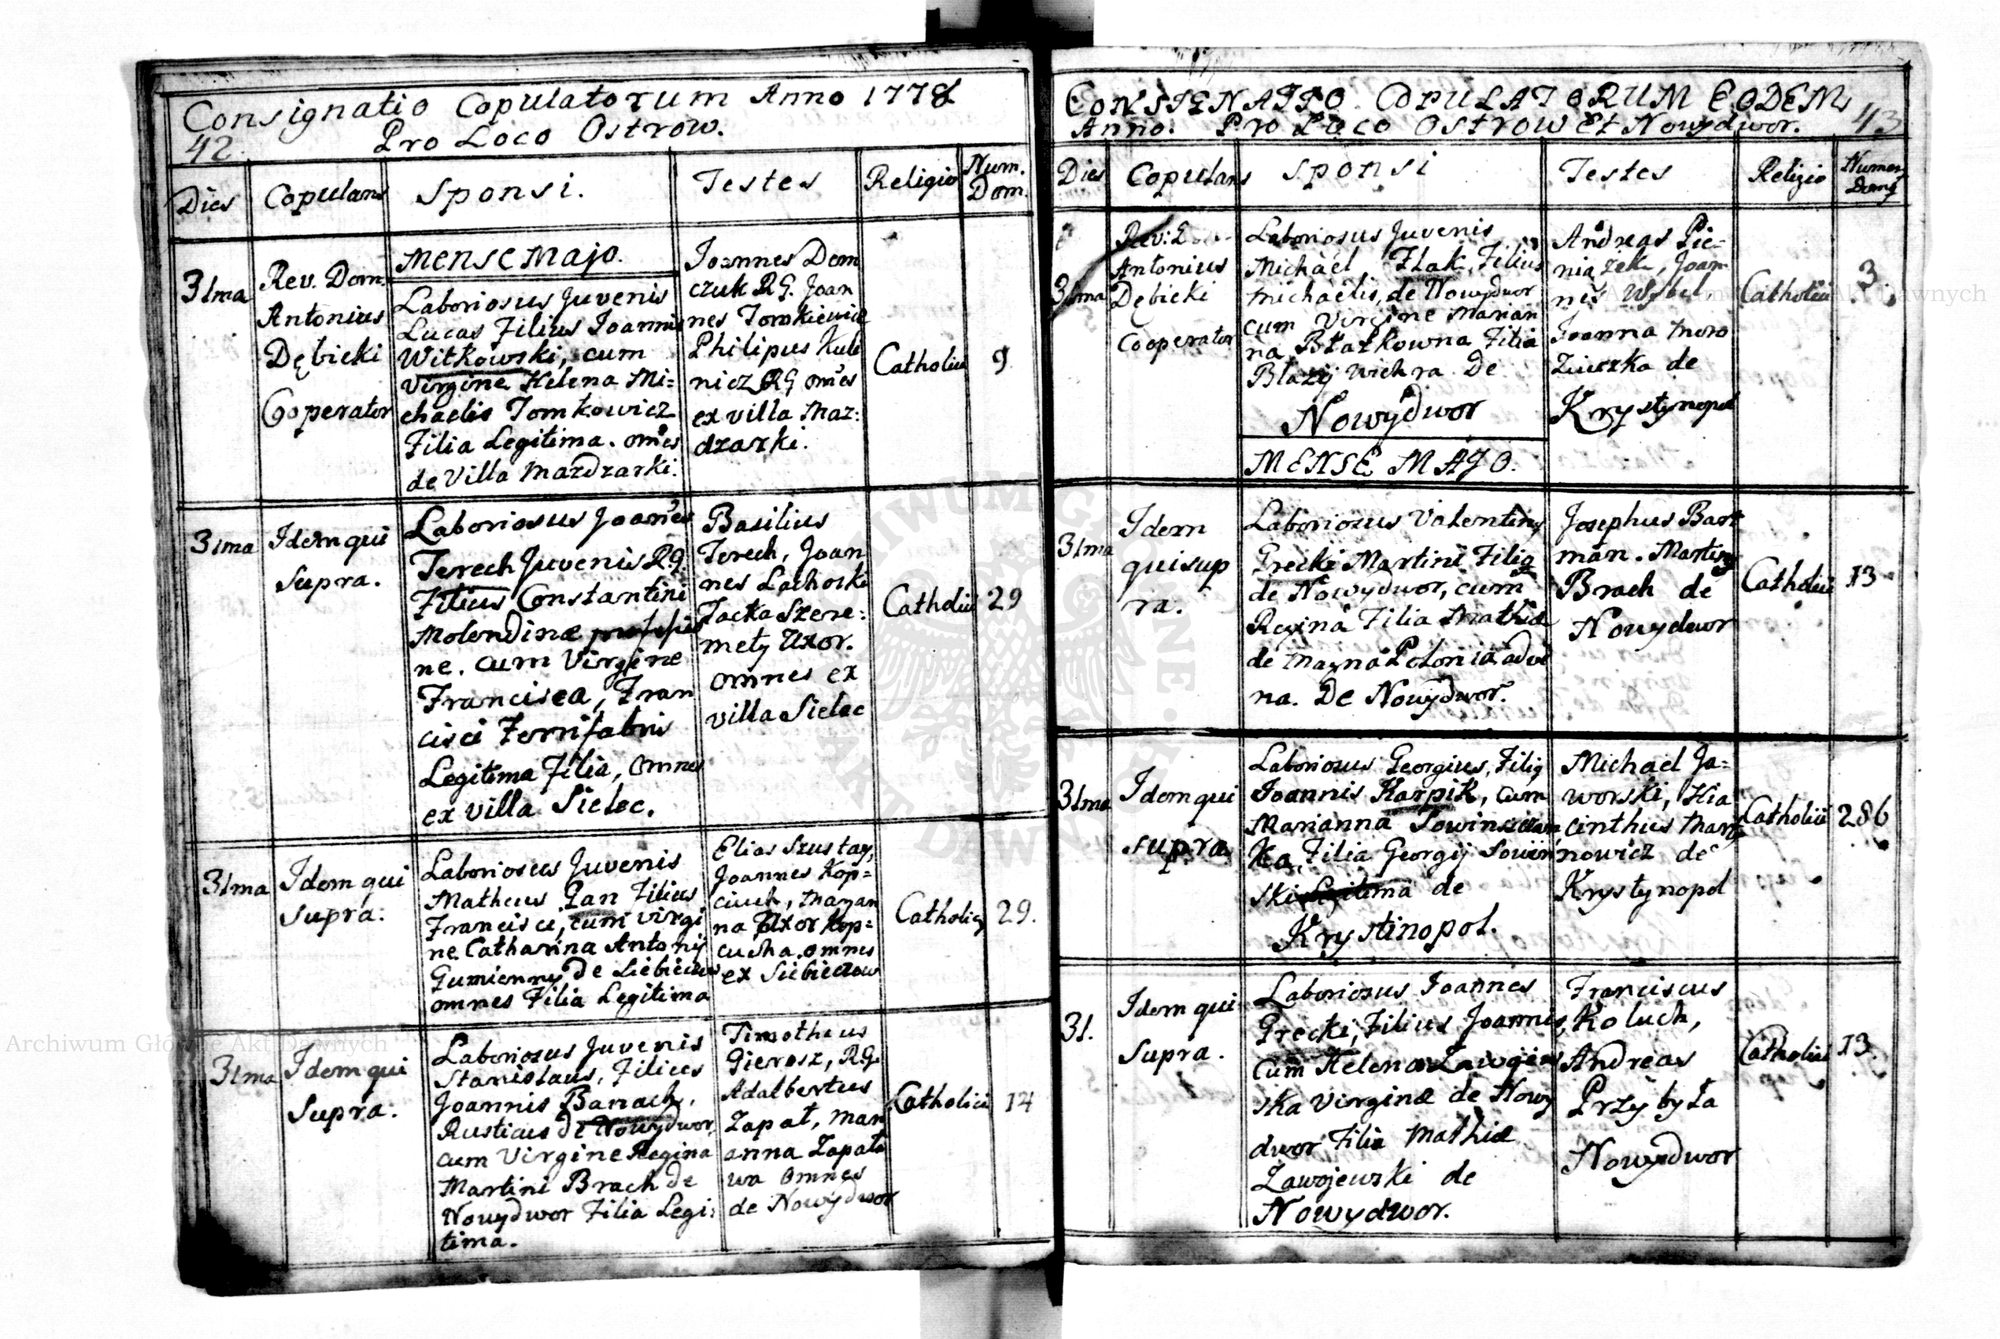 Consignatio Copulatorum Anno 1778
42. Pro Loco Ostrow.
Dies Copulans Sponsi. Testes Religio Num. Dom.
MENSE Majo.
31ma
Rev. Dom.
Antonius
Dębicki
Cooperator
Laboriosus Juvenis
Lucas Filius Joannis
Witkowski, cum
Virgine Helena Mi-
chaelis Tomkowicz
Filia Legitima. omes
de Villa Mazdzarki.
Joannes Dem
czuk RG. Joan
nes Tomkiewicz
Philipus Kule
nicz RG omes
ex villa Maz-
dzarki.
Catholici
9
31ma
Idem qui
Supra.
Laboriosus Joannes
Terech Juvenis RG
Filius Constantini
Molendinæ
ne. cum Virgine
Francisca, Fran
cisci Ferrifabris
Legitima Filia, omnes
ex villa Sielec.
Basilius
Terech, Joan
nes Lachocki
Jacka Szere-
mety Uxor.
omnes ex
villa Sielec
Catholici
29
31ma
Idem qui
Supra.
Laboriosus Juvenis
Matheus Pan Filius
Francisci, cum Virgi
ne Catharina Antonij
Gumienny de
omnes Filia Legitima
Elias Szustay,
Joannes Kop-
ciuch, Maryan
na Uxor Kop-
cucha. omnes
ex
Catholici
29.
31ma
Idem qui
Supra.
Laboriosus Juvenis
Stanislaus, Filius
Joannis Banach,
Rusticus de Nowydwor,
cum Virgine Regina
Martini Brach de
Nowydwor Filia Legi-
tima.
Timotheus
Gierosz, RG.
Adalbertus
Zapał, Mari
anna Zapała
wa omnes
de Nowydwor
Catholici
14
CONSIGNATIO COPULATORUM EODEM 43
Anno. Pro Loco Ostrow Et Nowydwor.
Dies Copulans Sponsi Testes Religio Numer
31ma
Antonius
Dębicki
Cooperator
Laboriosus Juvenis
Michael Flak, Filius
Michaelis, de Nowydwor
cum Virgine Marian
na Błazkowna Filia
Błazij Wichra De
Nowydwor
Andreas Pie-
niązek, Joan
nes
Joanna Moro
de
Krystynopol
Catholici
3
MENSE MAJO.
31ma
Idem
qui sup
ra.
Laboriosus Valentiny
Grecki Martini Filiy
de Nowydwor, cum
Regina Filia Mathiæ
de Magna Polonia adve
na. De Nowydwor.
Josephus Bart
man. Martiny
Brach de
Nowydwor
Catholici
13
31ma
Idem qui
supra
Laboriosus Georgius, Filiy
Joannis Karpik, cum
Marianna
ka, Filia Georgij Sowin
ski de
Krystinopol.
Michael Ja-
worski, Hia
cinthus Marcy
nowicz de
Krystynopol
Catholici
286
31.
Idem qui
Supra.
Laboriosus Joannes
Grecki, Filius Joannis,
Cum Helena Zawojew
ska Virginæ de Nowy
dwor Filia Mathiæ
Zawojewski de
Nowydwor.
Franciscus
Koluch,
Andreas
Przybyła
Nowydwor
Catholici
13
Archiwum Główne Akt Dawnych
Archiwum Główne Akt Dawnych
ARCHIWUM GŁÓWNE AKT DAWNYCH